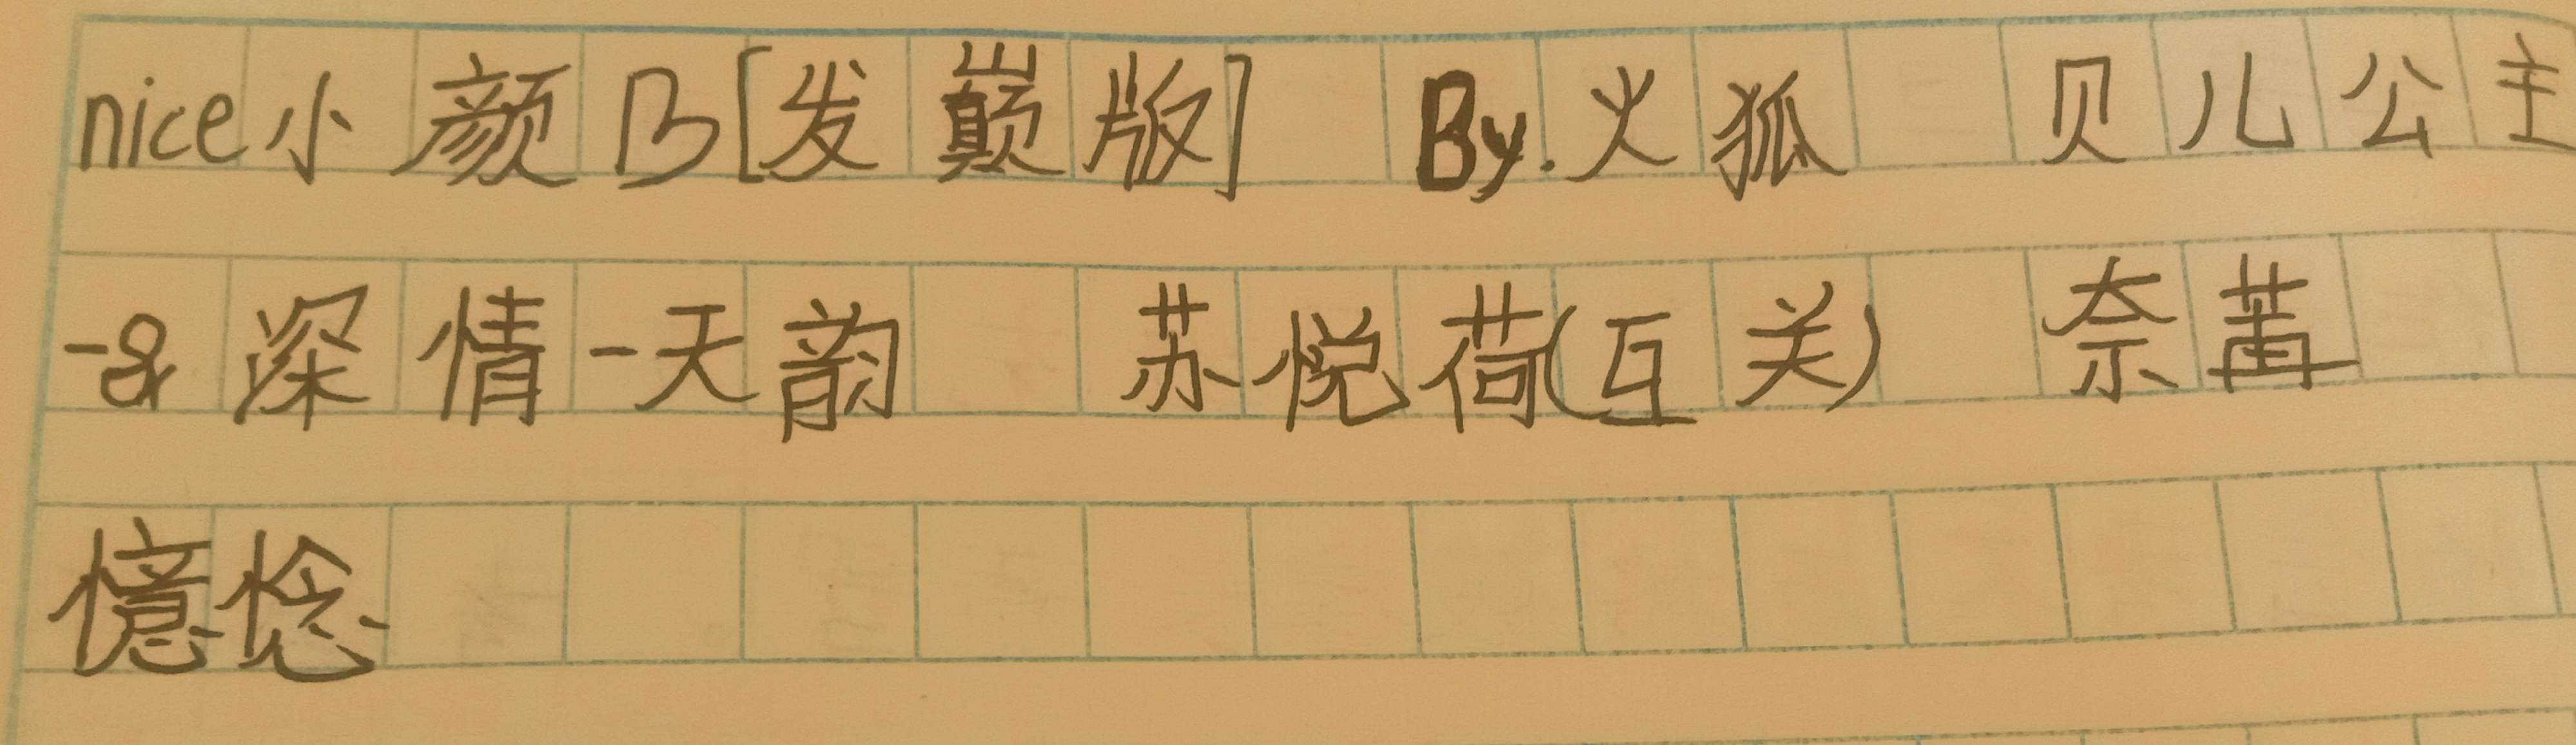 nice小颜B[发巅版] By.火狐 贝儿公主
-&深情-天韵 苏悦荷(互关) 奈苒
憶惗